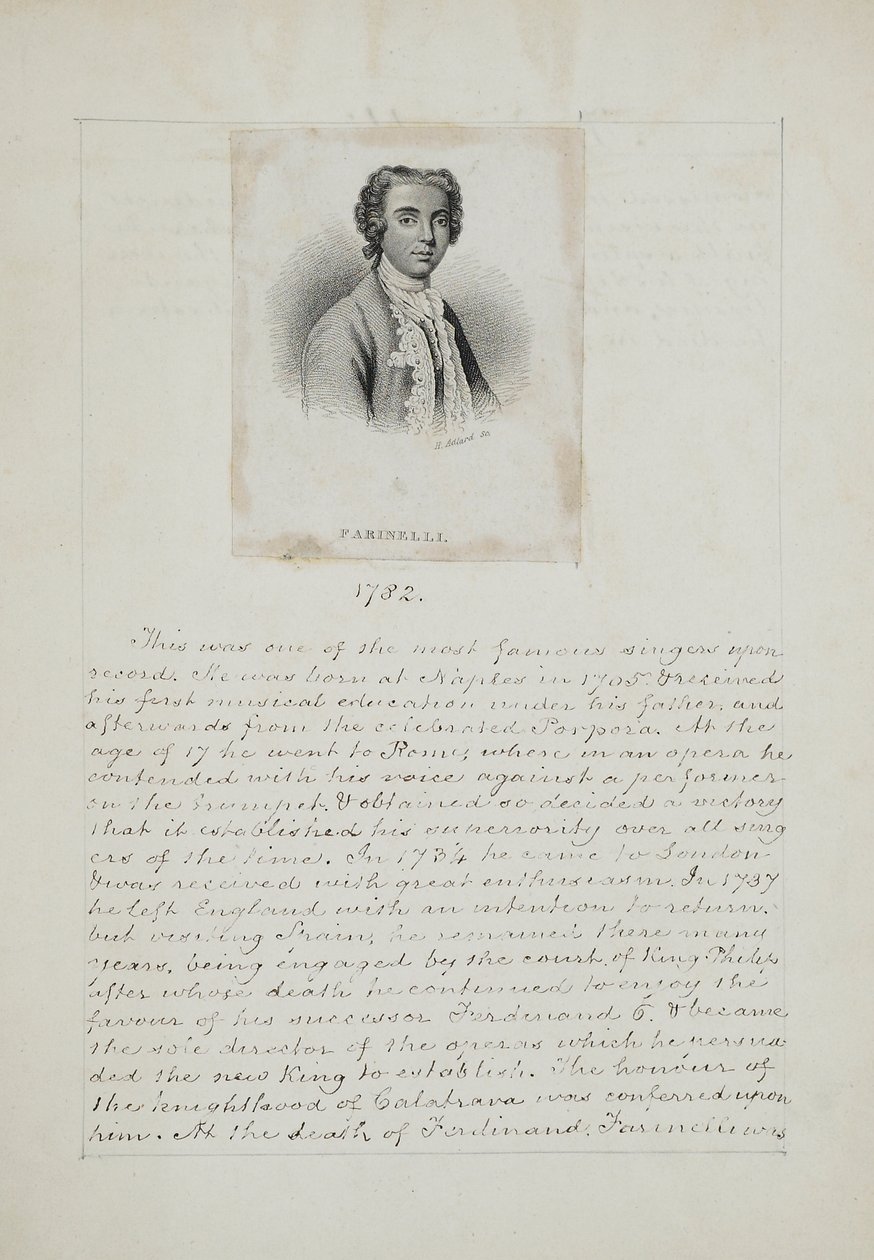 H. Adlard Sc.
FARINELLI.
1782.
This was one of the most famous singers upon
record. He was born at Naples in 1705. & received
his first musical education under his father, and
afterwards from the celebrated Porpora. At the
age of 17 he went to Rome, where in an opera he
contended with his voice against a performer
on the trumpet. & obtained so decided a victory
that it established his superiority over all sing
ers of the time. In 1734 he came to London
& was received with great enthusiasm. In 1737
he left England with an intention to return.
but visiting Spain, he remained there many
years, being engaged by the court of King Philip
after whose death he continued to enjoy the
favour of his successor Ferdinand 6. & became
the sole director of the operas which he persua
ded the new King to establish. The honour of
the knighthood of Calatrava was conferred upon
him. At the death of Ferdinand. Farinelli was